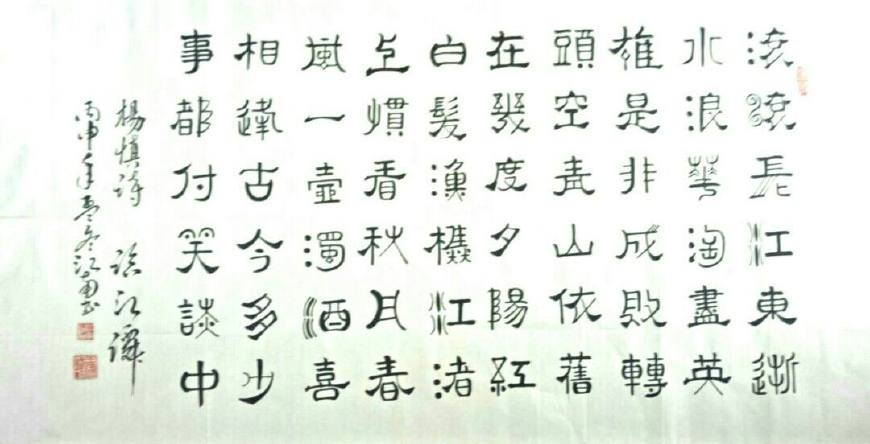 滚滚長江東逝
水浪華淘盡英
雄是非成敗轉
頭空青山依舊
在幾度夕陽紅
白髮漁樵江渚
上慣看秋月春
風一壺濁酒喜
相逢古今多少
事都付笑談中
楊慎詩 臨江
丙申年孟冬